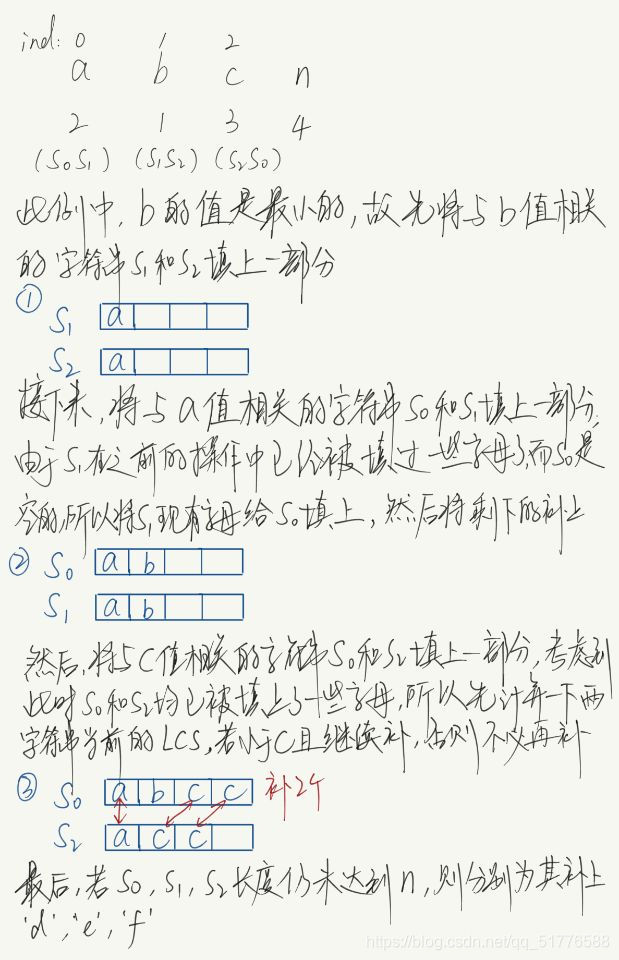 ind: 0 1 2
a b c n
2 1 3 4
(S0S1) (S1S2) (S2S0)
此例中, b的值是最小的, 故先将与b值相关
的字符串S1和S2填上一部分
①
S1 a
S2 a
接下来, 将与a值相关的字符串S0和S1填上一部分,
由于S1在之前的操作中已经被填过一些字母了,而S0是
空的,所以将S1现有字母给S0填上, 然后将剩下的补上
② S0 a b
S1 a b
然后, 将与C值相关的字符串S0和S2填上一部分, 考虑到
此时S0和S2均已被填上了一些字母, 所以先计算一下两
字符串当前的LCS, 若小于C且继续补, 否则不必再补
③ S0 a b c c 补2个
S2 a c c
最后, 若S0, S1, S2长度仍未达到n, 则分别为其补上
'd', 'e', 'f'
https://blog.csdn.net/qq_51776588